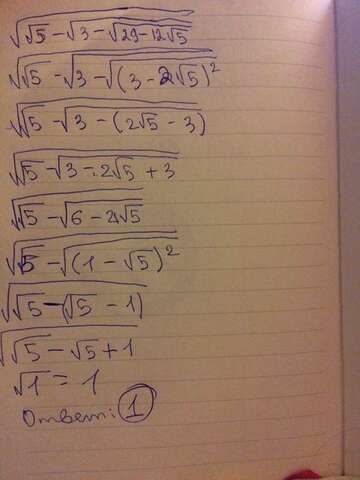 √(√5 - √(3 - √(29 - 12√5)))
√(√5 - √(3 - √((3 - 2√5)²)))
√(√5 - √(3 - (2√5 - 3)))
√(√5 - √(3 - 2√5 + 3))
√(√5 - √(6 - 2√5))
√(√5 - √((1 - √5)²))
√(√5 - (√5 - 1))
√(√5 - √5 + 1)
√1 = 1
Ответ: 1